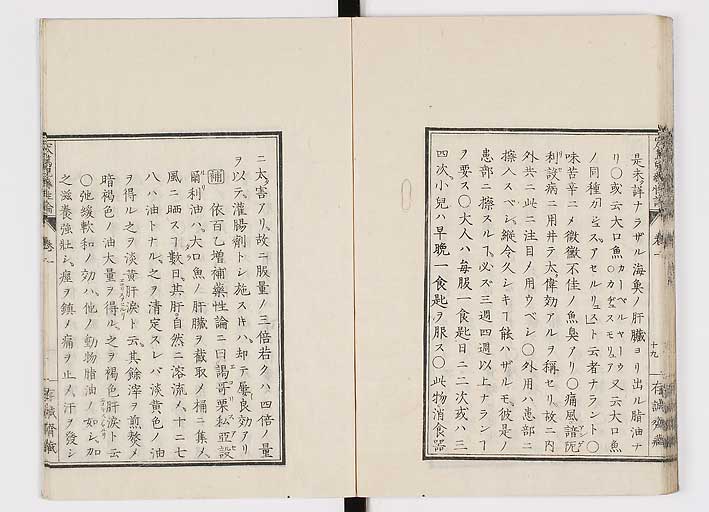 是未詳ナラザル海魚ノ肝臓ヨリ出ル脂油ナ
リ○或云大口魚カーベルヤーウ又云大口魚
ノ同種ガヂュスアセルリュストト云者ナラント○
味苦辛ニノ微黴不佳ノ魚臭アリ○痛風諳阨
利設病ニ用井テ太偉効アルヲ稱セリ故ニ内
外共ニ此ニ注目ノ用ウベシ○外用ハ患部ニ
擦入スベシ縱令久シキヿ能ハザルモ彼是ノ
患部ニ擦スルヿ必ズ三週四週以上ナランヿ
ヲ要ス○大人ハ毎服一食匙日ニ二次或ハ三
四次小兒ハ早晩一食匙ヲ服ス○此物消食器
ニ太害アリ故ニ服量ノ三倍若クハ四倍ノ量
ヲ以テ灌腸劑トシ施スㇳキハ却テ屡良効アリ
補 依百乙増補藥性論ニ曰謁哥栗私亞設
爾利油ハ大口魚ノ肝臓ヲ截取ノ桶ニ集メ
風ニ晒スヿ數日其肝自然ニ溶流ノ十ニ七
八ハ油トナル之ヲ清定スレバ淡黄色ノ油
ヲ得ル之ヲ淡黄肝淚ト云其餘滓ヲ煎熬ノ
暗褐色ノ油大量ヲ得ル之ヲ褐色肝淚ト云
○弛緩軟和ノ効ハ他ノ動物脂油ノ如シ加
之滋養強壯シ痙ヲ鎮ノ痛ヲ止メ汗ヲ發シ
卷一
十九
存誠齋藏